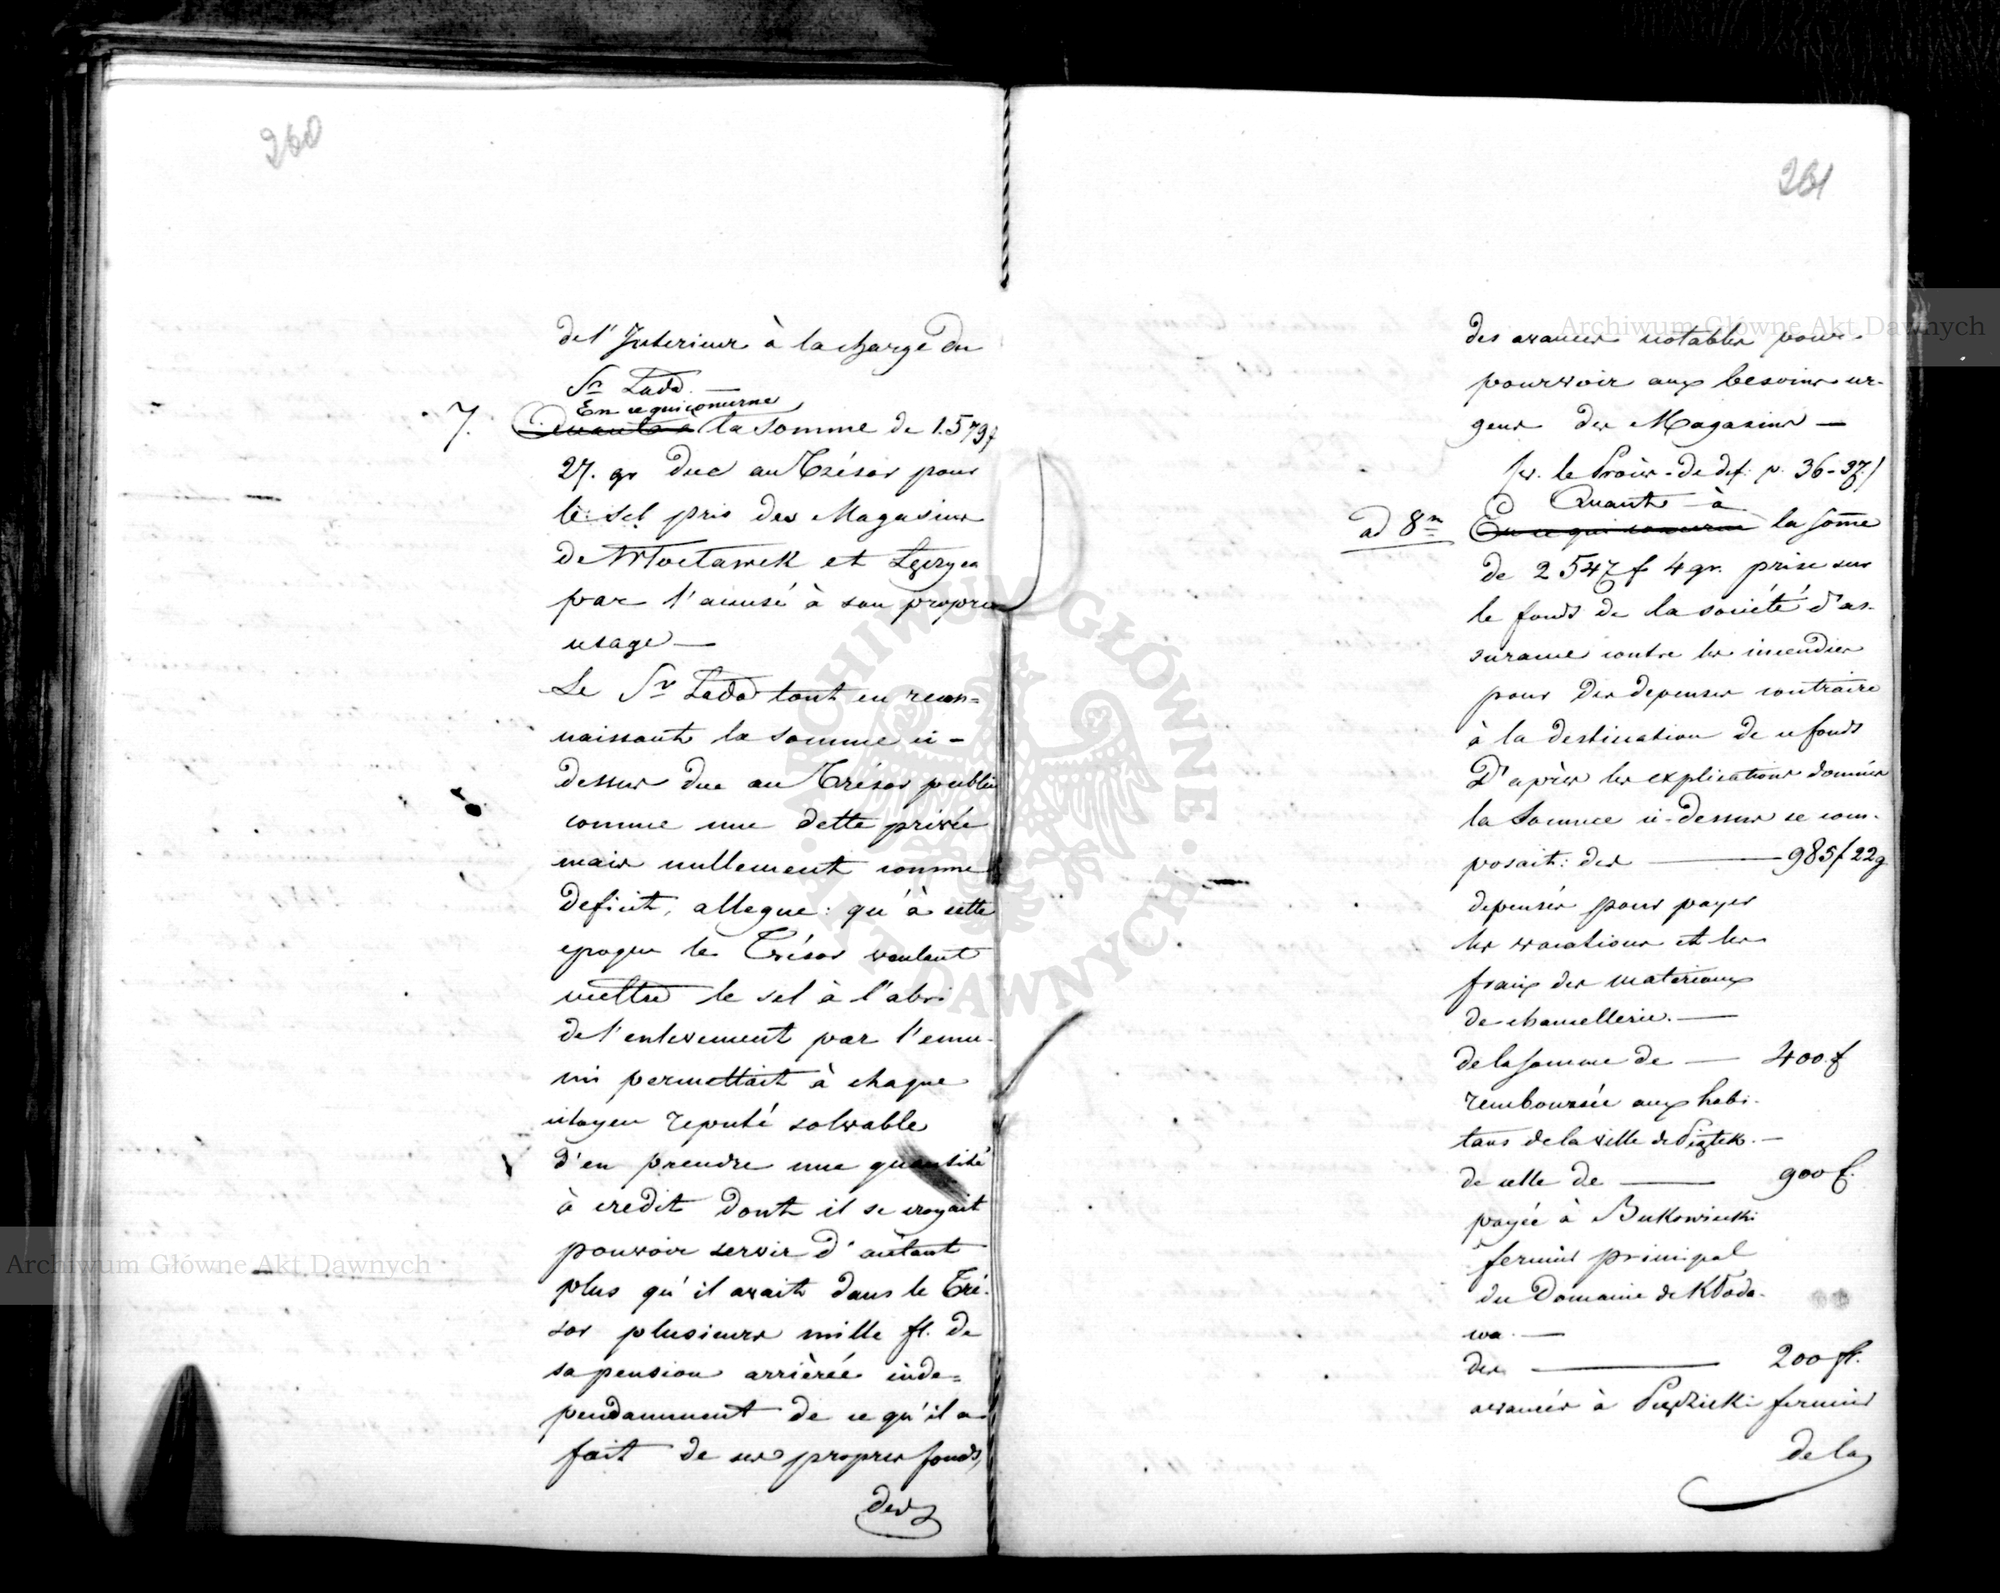 260
de l'Interieur à la charge du
Sr Łada. —
En ce qui concerne
7. Quant à la Somme de 1.579 f
27. gr due au Trésor pour
le sel pris des Magasins
de Włocławek et Łęczyca
par l'accusé à son propre
usage —
Le Sr Łada tout en recon=
naissant la Somme ci-
dessus due au Trésor public
comme une dette privée
mais nullement comme
deficit, allegue: qu'à cette
epoque le Trésor voulant
mettre le sel à l'abri
de l'enlevement par l'enne-
mi permettait à chaque
citoyen reputé solvable
d'en prendre une quantité
à credit dont il se croyait
pouvoir servir d'autant
plus qu'il avait dans le Tré-
sor plusieurs mille fl. de
sa pension arriérée inde=
pendamment de ce qu'il a
fait de ses propres fonds,
des
261
des avances notables pour
pourvoir aux besoins ur-
gens des Magasins —
(v. le Procès-de def. p. 36-37.)
Quant à
ad 8m En ce qui concerne la somme
de 2547 f 4 gr. prise sur
le fonds de la société d'as-
surance contre les incendies
pour des depenses contraire
à la destination de ce fonds
D'après les explications données
la Somme ci-dessus se com-
posait: des — 985 f 22 g
depensés pour payer
les vacations et les
fraix des materiaux
de chancellerie. —
de la somme de — 400 f
remboursée aux habi-
tans de la ville de Piątek. —
de celle de — 900 f.
payée à Bukowiecki
fermier principal
du Domaine de Kłoda-
wa. —
des — 200 fl.
avancés à fermier
de la
Archiwum Główne Akt Dawnych
Archiwum Główne Akt Dawnych
ARCHIWUM GŁÓWNE · AKT DAWNYCH ·